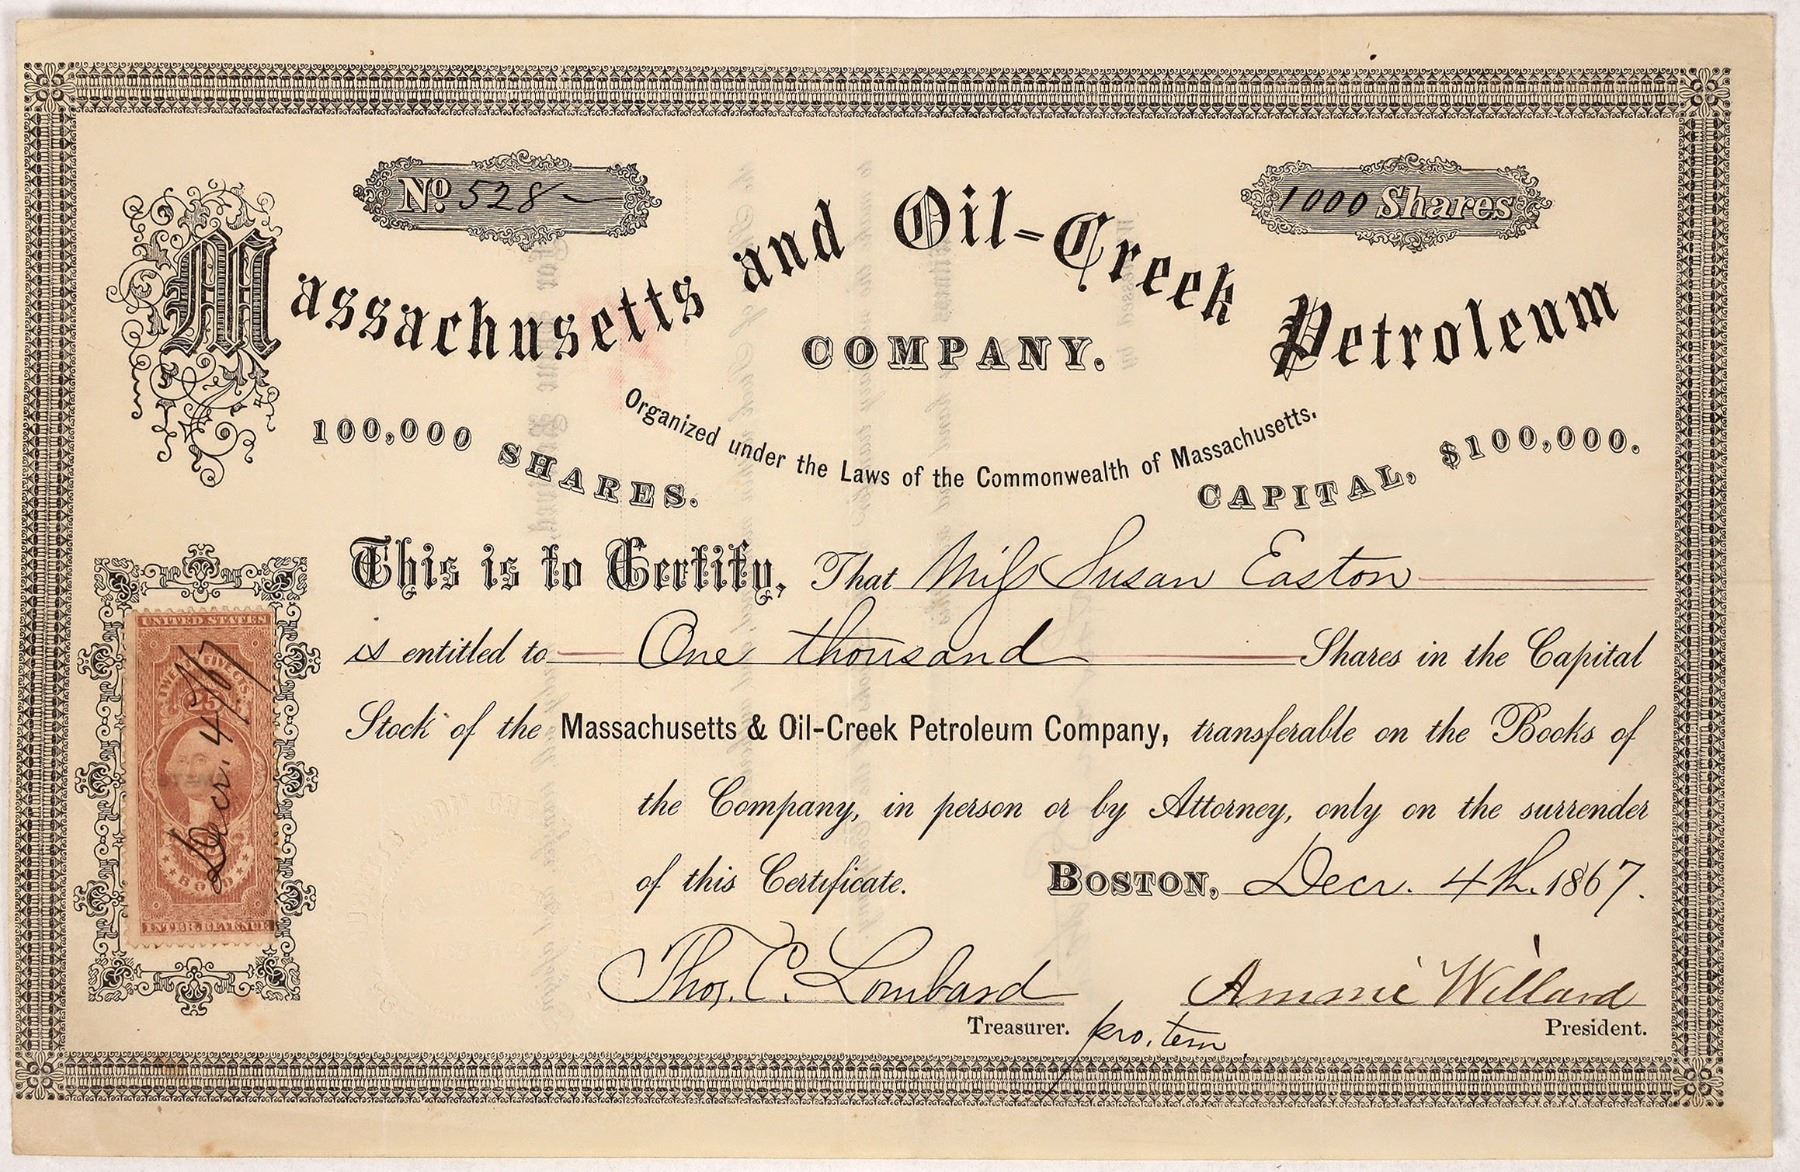 No. 528
1000 Shares
Massachusetts and Oil-Creek Petroleum
COMPANY.
Organized under the Laws of the Commonwealth of Massachusetts.
100,000 SHARES.
CAPITAL, $100,000.
This is to Certify, That Miss Susan Easton
is entitled to One thousand Shares in the Capital
Stock of the Massachusetts & Oil-Creek Petroleum Company, transferable on the Books of
the Company, in person or by Attorney, only on the surrender
of this Certificate. BOSTON, Decr. 4th. 1867.
Thos. C. Lombard
Treasurer. pro. tem
Ammi Willard
President.
UNITED STATES
TWENTY FIVE CTS.
25
Decr. 4/67
BOND
INTER. REVENUE